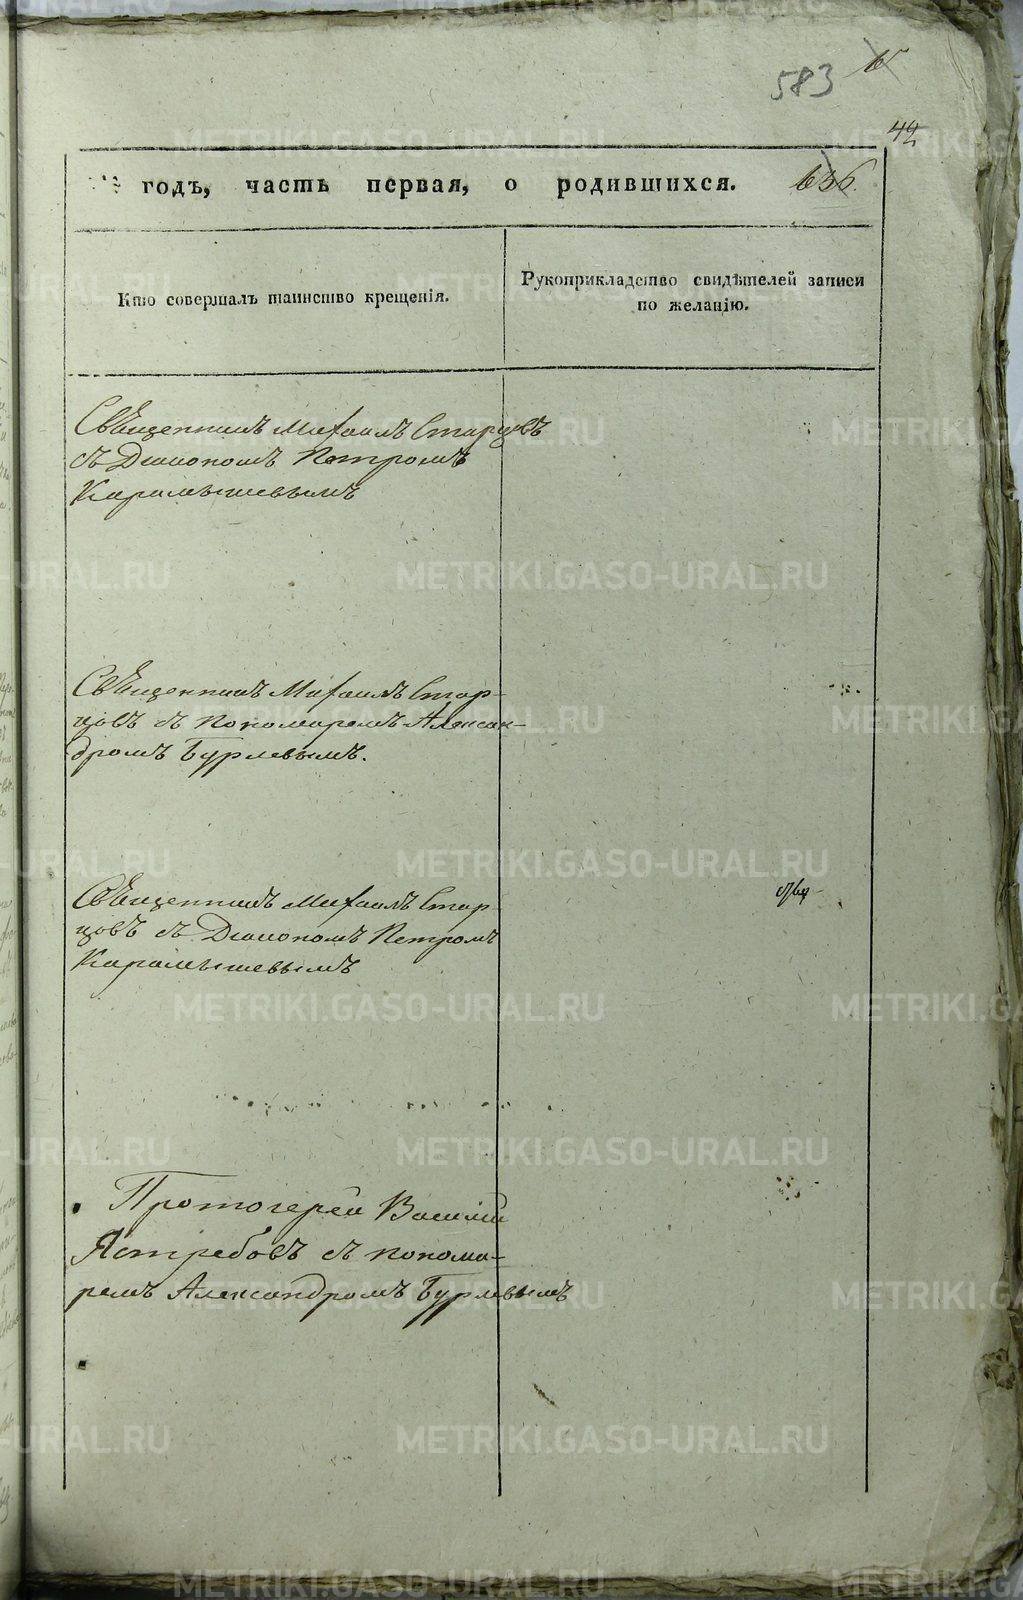 583
42
годъ, часть первая, о родившихся. 636.
Кто совершалъ таинство крещенія.
Рукоприкладство свидѣтелей записи
по желанію.
Священникъ Михаилъ Старцовъ
съ Діакономъ Петромъ
Карамышевымъ
Священникъ Михаилъ Стар-
цовъ съ Пономаремъ Алексан-
дромъ Бурлевымъ.
Священникъ Михаилъ Стар-
цовъ съ Діакономъ Петромъ
Карамышевымъ
Протоіерей Василій
Ястребовъ съ понома-
ремъ Александромъ Бурлевымъ
METRIKI.GASO-URAL.RU